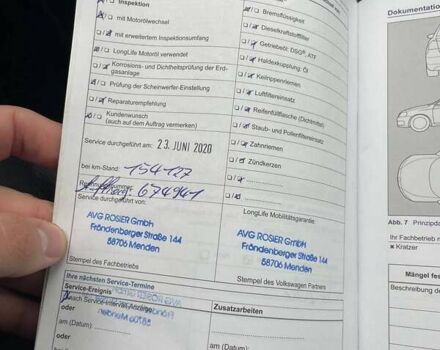 Inspektion
mit Motorölwechsel
mit erweitertem Inspektionsumfang
LongLife Motoröl verwendet
Korrosions- und Dichtheitsprüfung der Erd-
gasanlage
Prüfung der Scheinwerfer-Einstellung
Reparaturempfehlung
Kundenwunsch
(auch auf dem Auftrag vermerken)
Service durchgeführt am: 23. JUNI 2020
bei km-Stand: 154127
674941
Service durchgeführt von:
AVG ROSIER GmbH
Fröndenberger Straße 144
58706 Menden
Stempel des Fachbetriebs
Bremsflüssigkeit
Dieselkraftstofffilter
Getriebeöl: DSG®, ATF
Haldexkupplung: Öl
Keilrippenriemen
Luftfiltereinsatz
Reifenfüllflasche (Dichtmittel)
Staub- und Pollenfiltereinsatz
Zahnriemen
Zündkerzen
LongLife Mobilitätsgarantie
AVG ROSIER GmbH
Fröndenberger Straße 144
58706 Menden
Stempel des Volkswagen Partners
Ihre nächsten Service-Termine
Service-Ereignis
nach Service-Intervall-Anzeige
oder
am (Datum):
oder
am (Datum)
Zusatzarbeiten
am (Datum):
Dokumentation
Abb. 7 Prinzipda
Ihr Fachbetrieb
× Kratzer
Mängel fes
Beschreibung der